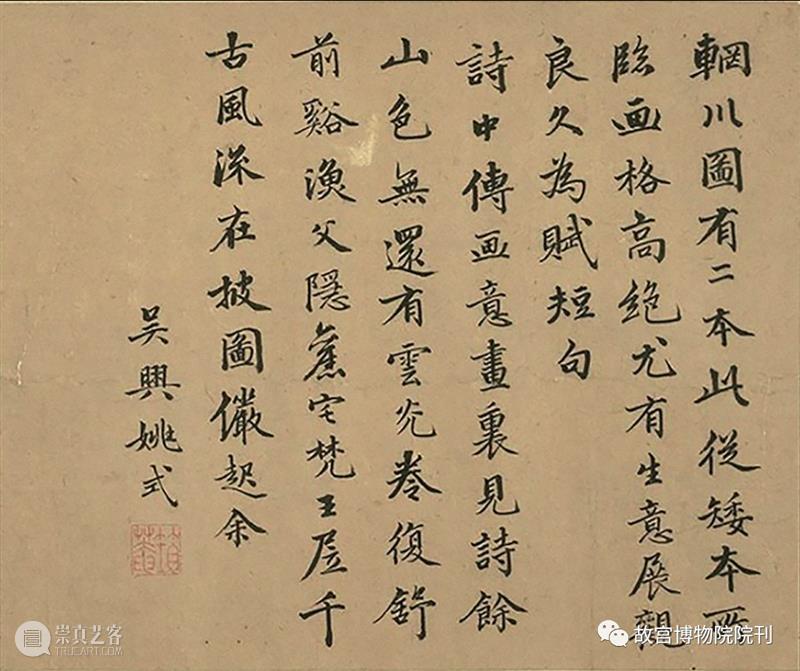 輞川圖有二本此從矮本所
臨画格高絶尤有生意展觀
良久為賦短句
詩中傳画意畫裏見詩餘
山色無還有雲光卷復舒
前谿漁父隱舊宅梵王居千
古風流在披圖儼起余
吴興姚式
崇真艺客
故宫博物院院刊